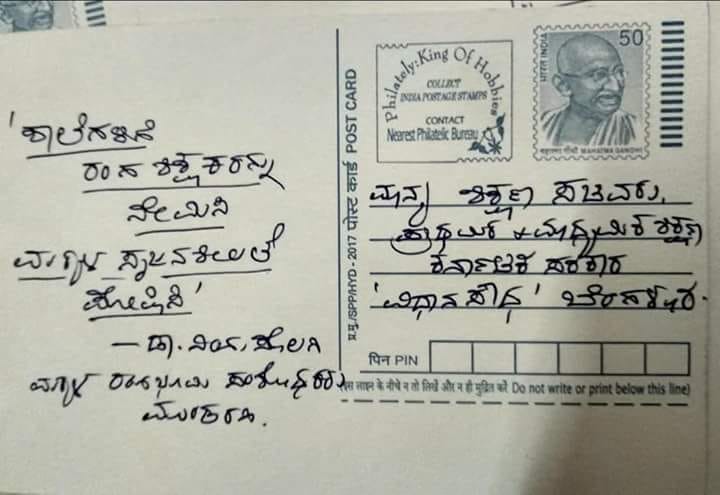 'ಶಾಲೆಗಳಿಗೆ
ರಂಗ ಶಿಕ್ಷಕರನ್ನು
ನೇಮಿಸಿ
ಮಕ್ಕಳ ಸೃಜನಶೀಲತೆ
ಪೋಷಿಸಿ'
— ಡಾ.
ಮಕ್ಕಳ ರಂಗಭೂಮಿ ಸಂಶೋಧಕರು,
प्र.मु./SPP/HYD - 2017 पोस्ट कार्ड POST CARD
Philately: King Of Hobbies
COLLECT
INDIA POSTAGE STAMPS
CONTACT
Nearest Philatelic Bureau
50
भारत INDIA
महात्मा गाँधी MAHATMA GANDHI
ಮಾನ್ಯ ಶಿಕ್ಷಣ ಸಚಿವರು,
ಪ್ರಾಥಮಿಕ & ಮಾಧ್ಯಮಿಕ ಶಿಕ್ಷಣ
ಕರ್ನಾಟಕ ಸರಕಾರ
'ವಿಧಾನಸೌಧ' ಬೆಂಗಳೂರ.
पिन PIN
इस लाइन के नीचे न तो लिखें और न ही मुद्रित करें Do not write or print below this line)